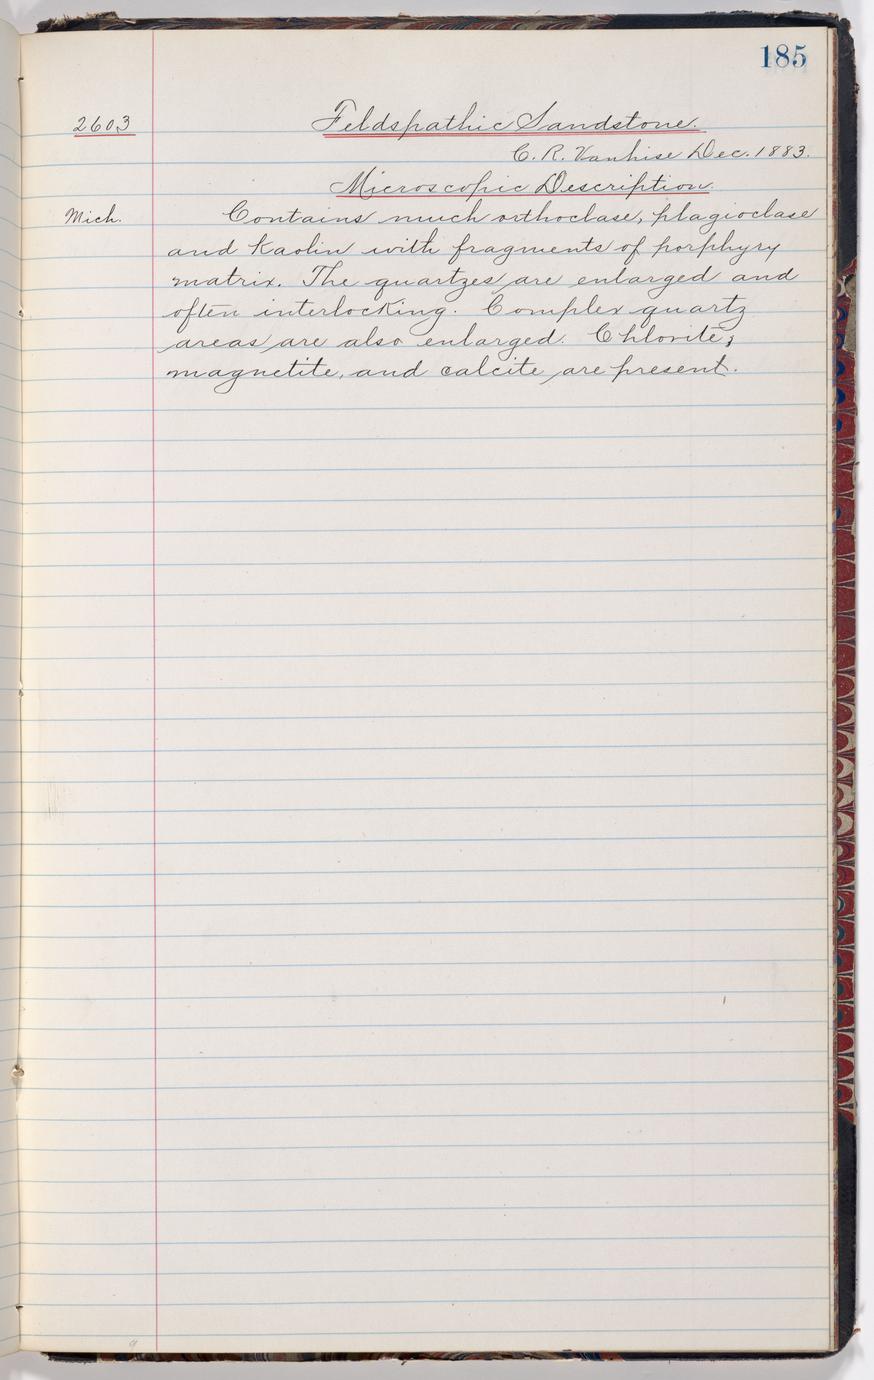 185
2603 Feldspathic Sandstone.
C. R. Vanhise Dec. 1883.
Microscopic Description.
Mich. Contains much orthoclase, plagioclase
and kaolin with fragments of porphyry
matrix. The quartzes are enlarged and
often interlocking. Complex quartz
areas are also enlarged. Chlorite,
magnetite, and calcite are present.